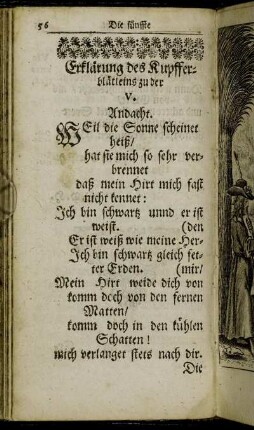 56 Die fünffte
Erklärung des Kupffer-
blätleins zu der
V.
Andacht.
WEil die Sonne scheinet
heiß/
hat sie mich so sehr ver-
brennet
daß mein Hirt mich fast
nicht kennet:
Ich bin schwartz unnd er ist
weist. (den
Er ist weiß wie meine Her-
Ich bin schwartz gleich fet-
ter Erden. (mir/
Mein Hirt weide dich von
komm doch von den fernen
Matten/
komm doch in den kühlen
Schatten!
mich verlanget stets nach dir.
Die